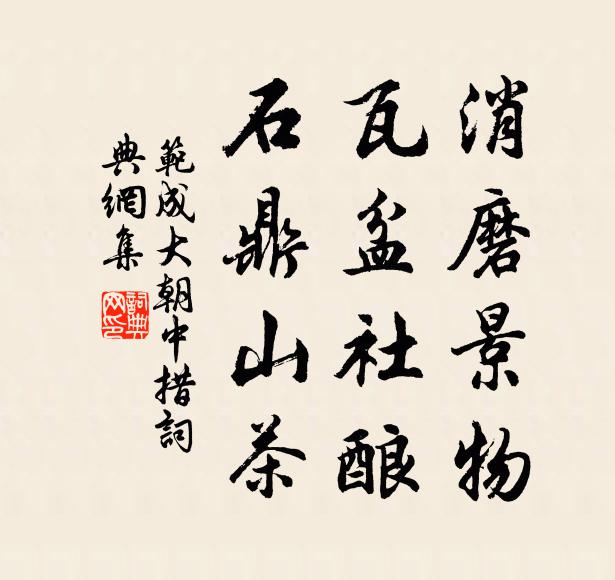 消磨景物
瓦盆社酿
石鼎山茶
範成大朝中措詞
典網集
詞典网印